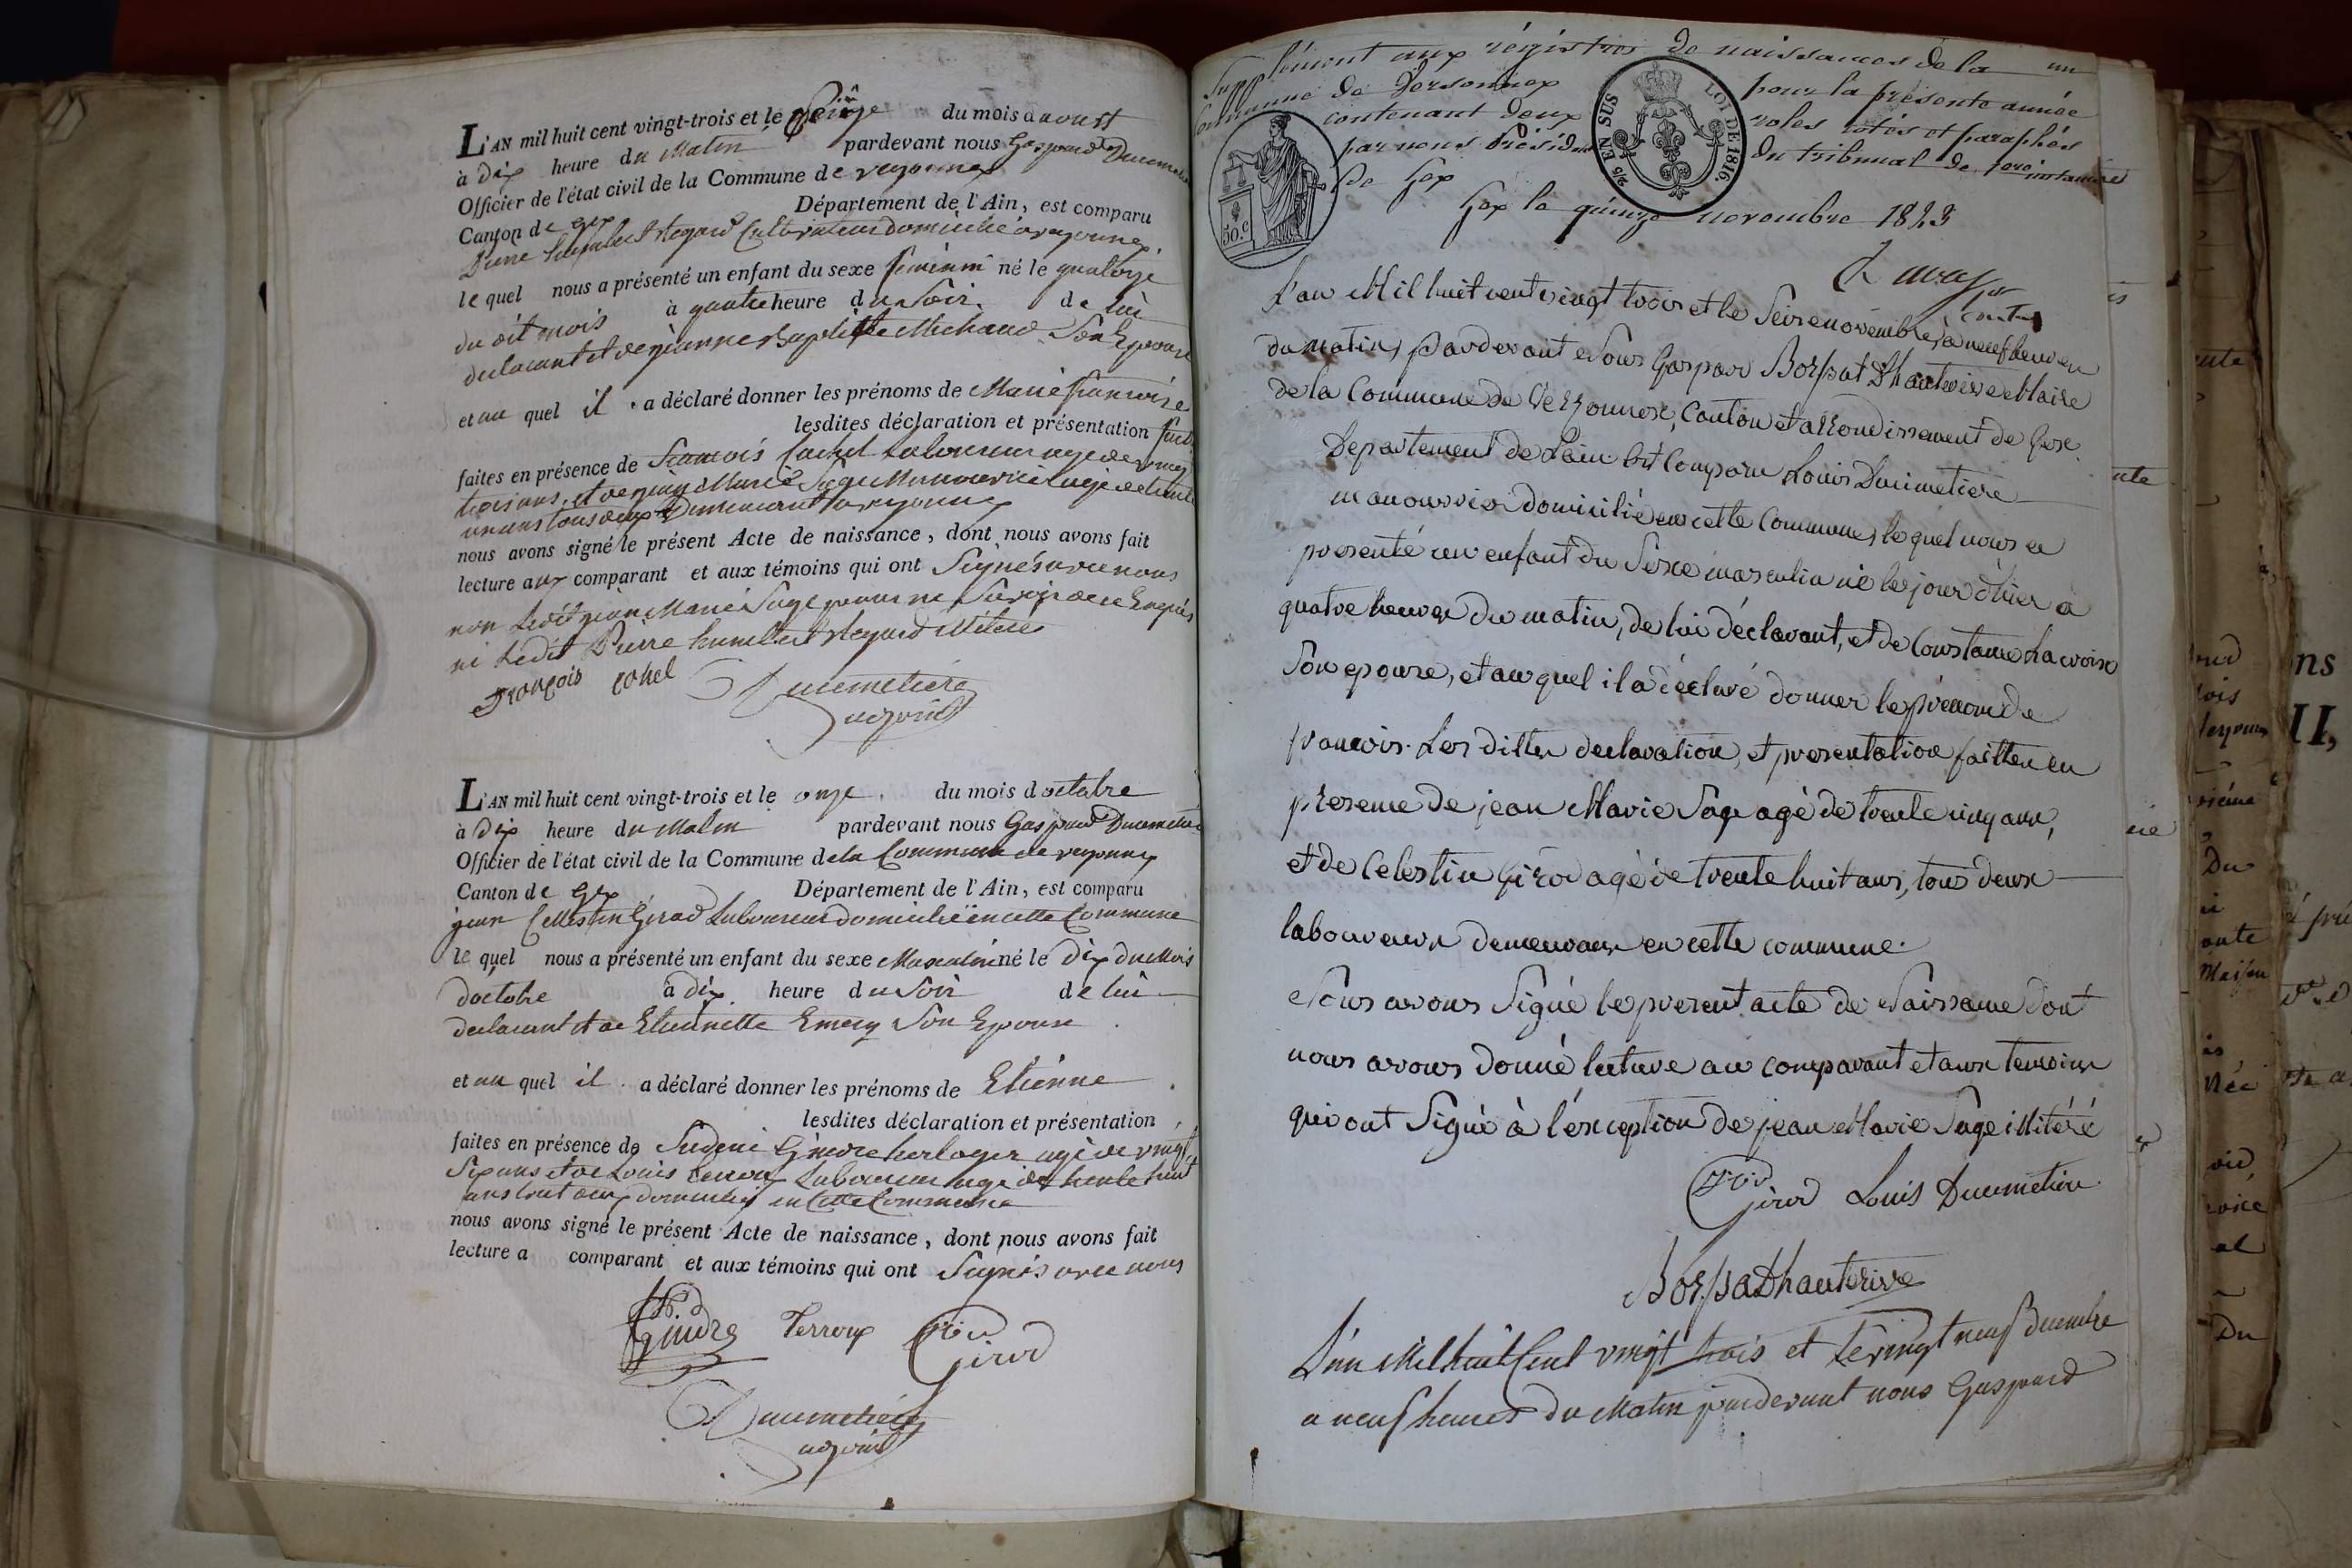 L'AN mil huit cent vingt-trois et le du mois d avoust
à dix heure du Matin pardevant nous Gaspard Ducimetiere
Officier de l'état civil de la Commune de vezonnex
Canton de Gex Département de l'Ain, est comparu
Pierre humbert Regard Cultivateur domicilié a vezonnex.
le quel nous a présenté un enfant du sexe feminin né le quatorze
du dit mois à quatre heure du soir de lui
declarant et de jeanne Baptiste Michaud Son Epouse
et au quel il a déclaré donner les prénoms de Marie françoise
lesdites déclaration et présentation
faites en présence de françois Cachel Laboureur agé de vingt
trois ans, et de jean Marie Sage Manouvrier agé de trente
un ans tous deux Demeurant a vezonnex
nous avons signé le présent Acte de naissance, dont nous avons fait
lecture aux comparant et aux témoins qui ont Signés avec nous
non Ledit jean Marie Sage pour ne Savoir de ce Enquis
ni Ledit Pierre humbert Regard illiteré
François Cohel Ducimetiere
adjoint
L'AN mil huit cent vingt-trois et le onze du mois d octobre
à Dix heure du Matin pardevant nous Gaspard Ducimetiere
Officier de l'état civil de la Commune de la Commune de vezonnex
Canton de Gex Département de l'Ain, est comparu
jean Celestin Girod Laboureur domicilié en cette Commune
le quel nous a présenté un enfant du sexe Masculin né le dix du Mois
doctobre à dix heure du Soir de lui
declarant et de Etiennette Emery Son Epouse
et au quel il a déclaré donner les prénoms de Etienne
lesdites déclaration et présentation
faites en présence de Gindre horloger agé de vingt
Six ans et de Louis Terroux Laboureur agé de trente huit
ans tout deux domiciliés en Cette Commune
nous avons signé le présent Acte de naissance, dont nous avons fait
lecture a comparant et aux témoins qui ont Signés avec nous
Gindre Terroux Girod
Ducimetiere
adjoint
Supplément aux régistres de naissances de la un
Commune de Versonnex pour la présente année
contenant deux roles cotés et paraphés
par nous Président du tribunal de 1ere instance
de Gex
2/5 EN SUS LOI DE 1816.
50.C
Gex le quinze novembre 1823
L'an Mil huit cent vingt trois et le Seize novembre, à neuf heures
du matin, pardevant Nous Gaspard Borssat Dhauterive Maire
de la Commune de Verzonnex, Canton et arrondissement de Gex
Departement de Lain Est Comparu Louis Ducimetiere
manouvrier domicilié en cette Commune, lequel nous a
presenté un enfant du Sexe masculin né le jour d'hier a
quatre heures du matin, de lui déclarant, et de Constance Lacroix
Son epouse, et auquel il a déclaré donner le prénom de
francois. Les dittes declaration, et presentation faittes en
presence de jean Marie Sage agé de trente cinq ans,
et de Celestin Girod agé de trente huit ans, tous deux
laboureurs demeurans en cette commune.
Nous avons Signé le present acte de Naissance dont
nous avons donné lecture au comparant et aux temoins
qui ont Signé à l'exception de jean Marie Sage illitéré
Girod Louis Ducimetiere
Borssat Dhauterive
L'an Mil huit Cent vingt trois et le vingt neuf Decembre
a neuf heures du Matin pardevant nous Gaspard